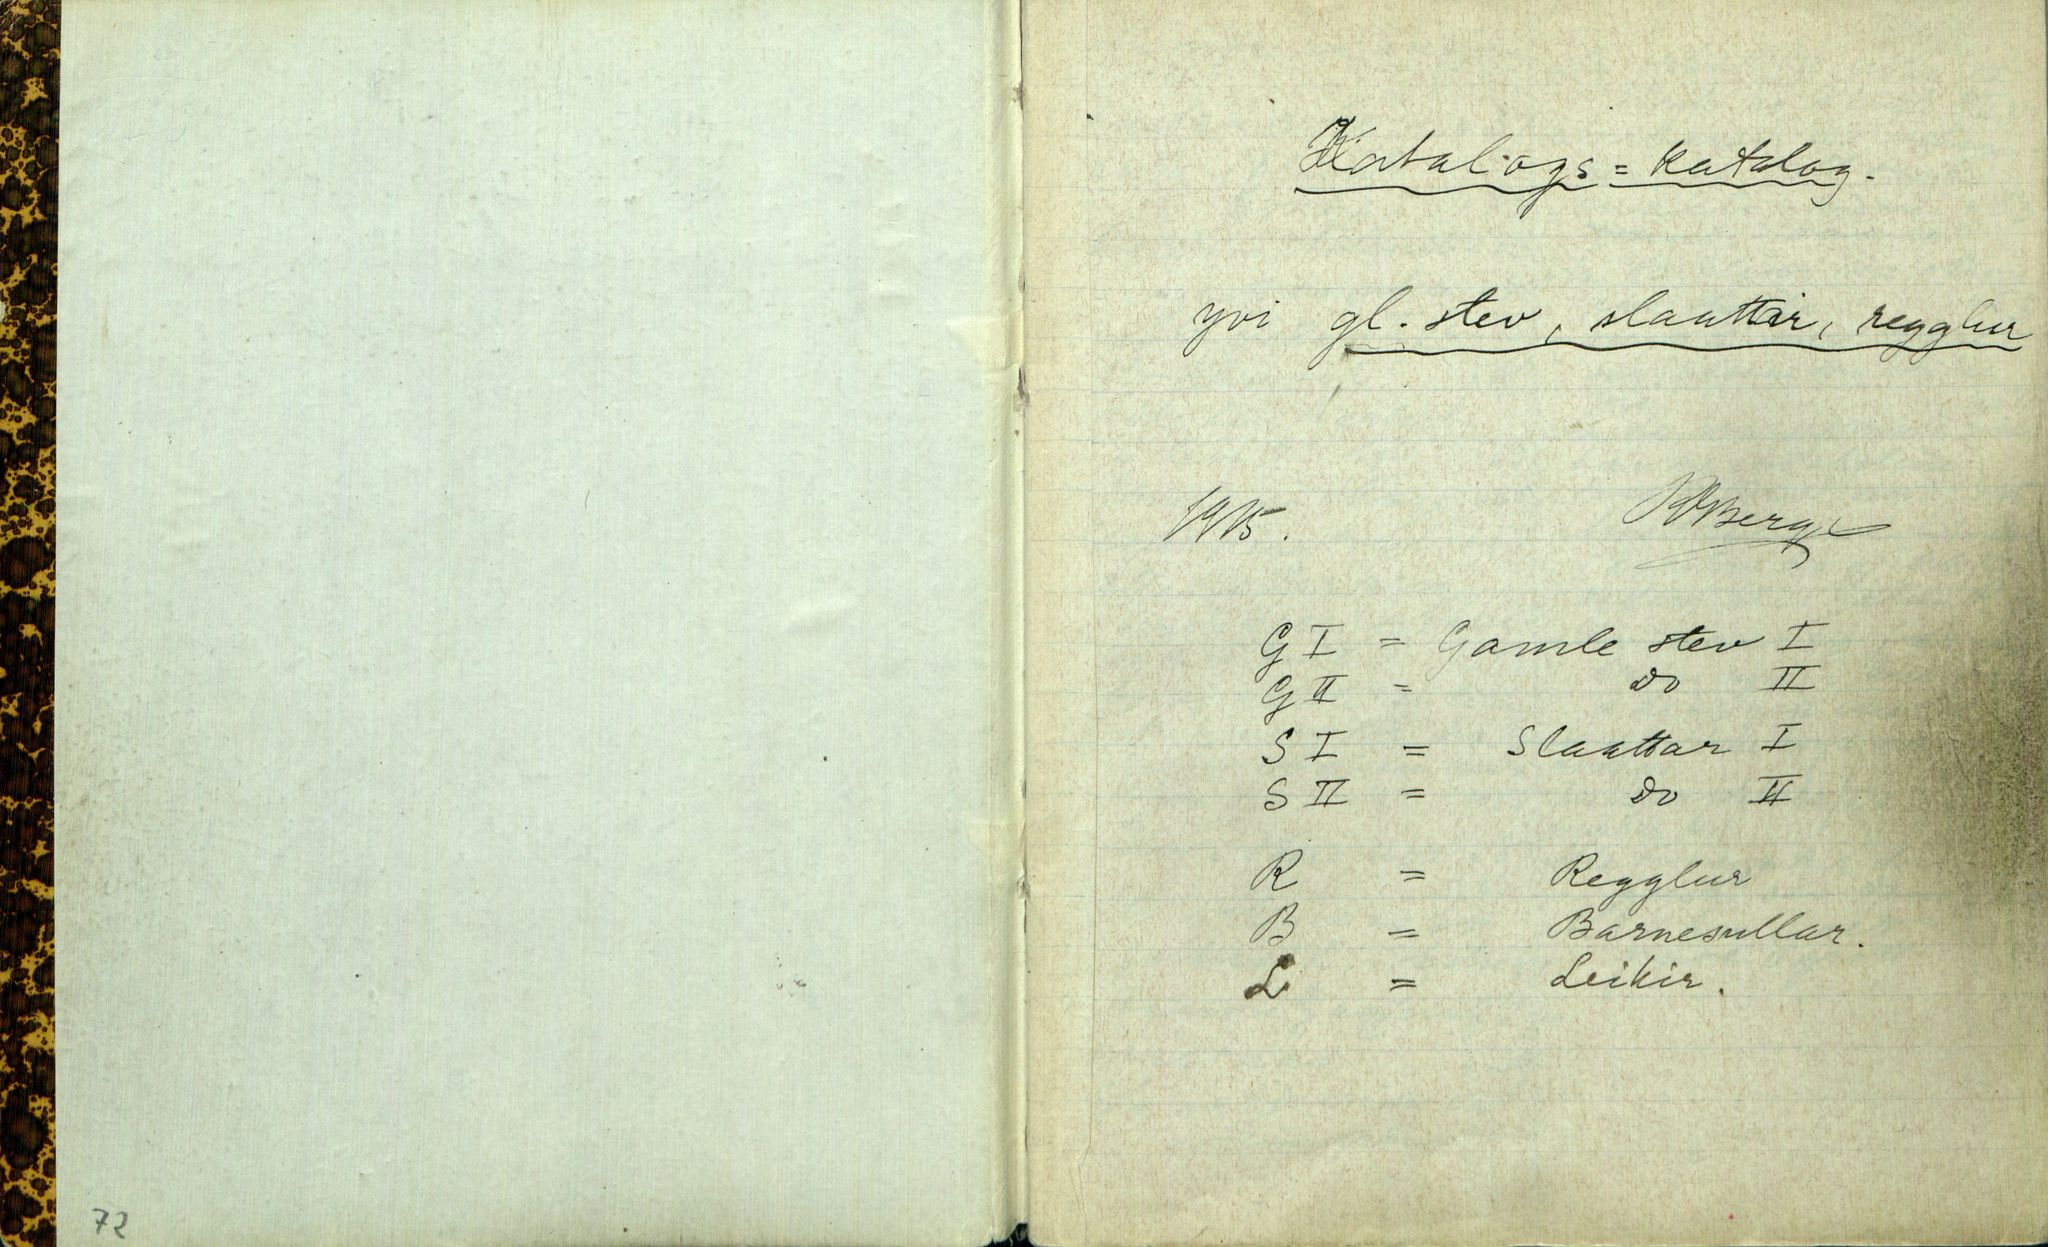 72
Katalogs=katalog.
yvi gl. stev, slaattir, regglur
1915. RBerge
G I = Gamle stev I
G II = do II
S I = Slaattar I
S II = do II
R = Regglur
B = Barnesullar.
L = Leikir.